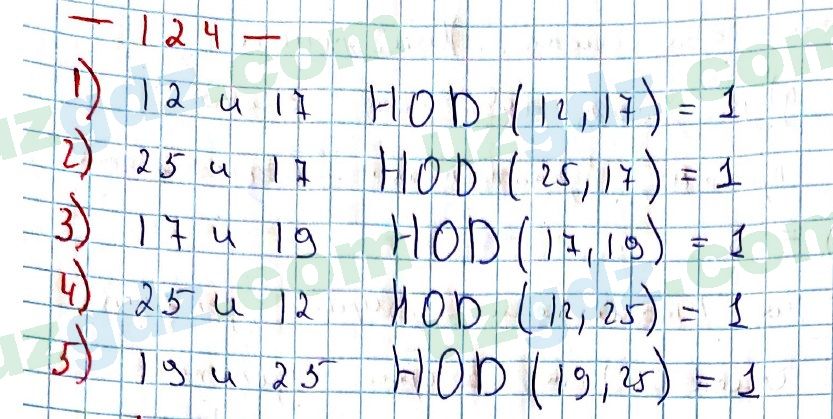 — 124 —
1) 12 и 17 НОД (12, 17) = 1
2) 25 и 17 НОД (25, 17) = 1
3) 17 и 19 НОД (17, 19) = 1
4) 25 и 12 НОД (12, 25) = 1
5) 19 и 25 НОД (19, 25) = 1
uzgdz.com